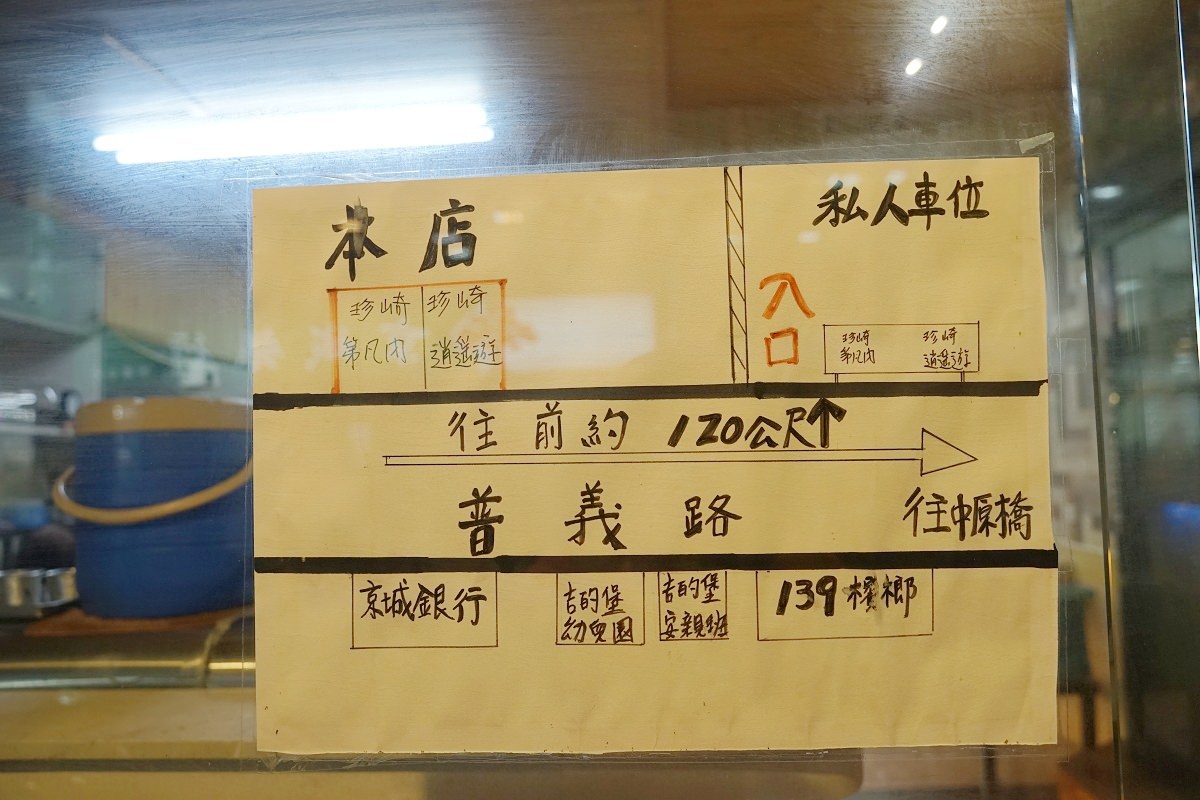 本店
私人車位
珍崎 珍崎
第凡內 逍遙遊
入口
珍崎 珍崎
第凡內 逍遙遊
往前約 120公尺↑
普義路
往中原橋
京城銀行
吉的堡
幼兒園
吉的堡
安親班
139檳榔